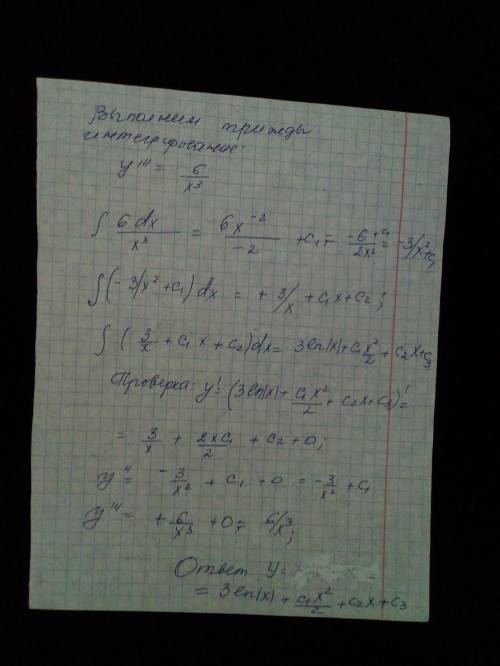 Выполним трижды
интегрирование:
y''' = 6/x³
∫ 6dx/x³ = 6x⁻²/-2 + c₁ = -6/2x² + c₁ = -3/x² + c₁
∫(-3/x² + c₁)dx = + 3/x + c₁x + c₂;
∫(3/x + c₁x + c₂)dx = 3ln|x| + c₁x²/2 + c₂x + c₃
Проверка: y' = (3ln|x| + c₁x²/2 + c₂x + c₃)' =
= 3/x + 2xc₁/2 + c₂ + 0;
y'' = -3/x² + c₁ + 0 = -3/x² + c₁
y''' = + 6/x³ + 0 = 6/x³;
Ответ y =
= 3ln|x| + c₁x²/2 + c₂x + c₃